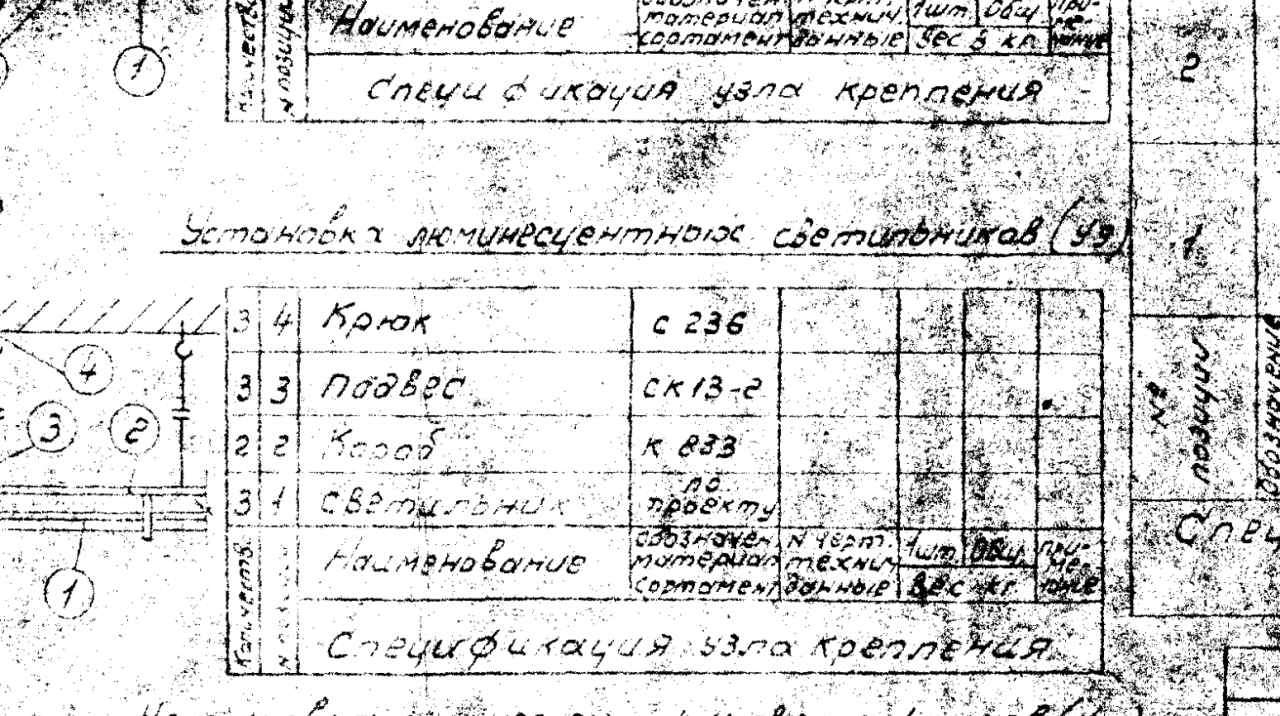 Наименование
материал технич. 1шт. Общ.
сортамент данные Вес в кг.
Спецификация узла крепления
1
2
Установка люминесцентных светильников (У9)
1
3 4 Крюк с 236
3 3 Подвес ск13-2
2 2 Короб к 833
3 1 Светильник по
проекту
4
3 2
1
Колич.
Наименование
обозначен. N черт. 1шт. Общ. при-
материал технич. ме-
сортамент данные Вес кг.
Спецификация узла крепления
№
позиции
Обозначение